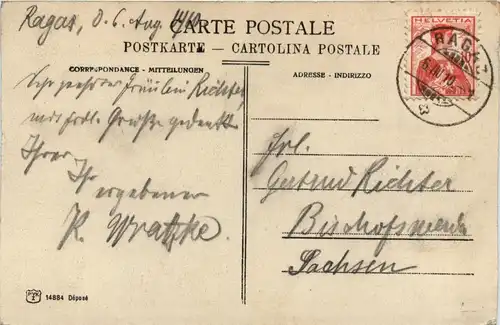 Ragaz, d. 6. Aug. 1910
CARTE POSTALE
POSTKARTE — CARTOLINA POSTALE
CORRESPONDANCE - MITTEILUNGEN
ADRESSE - INDIRIZZO
HELVETIA
RAGAZ
Sehr geehrtes Fräulein Richter,
Grüße gedenkt
Ihrer
Ihr
ergebener
K. Wratzke.
Frl.
Gertrud Richter
Bischofswerda
Sachsen
14884 Déposé